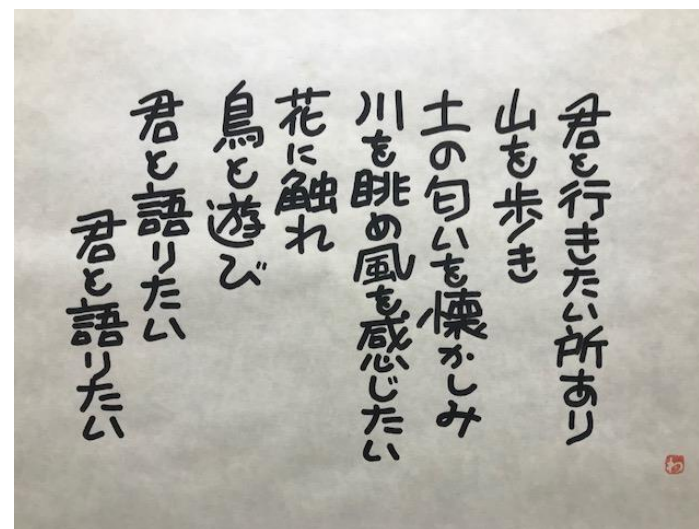 君と行きたい所あり
山を歩き
土の匂いを懐かしみ
川を眺め風を感じたい
花に触れ
鳥と遊び
君と語りたい
君と語りたい
わ